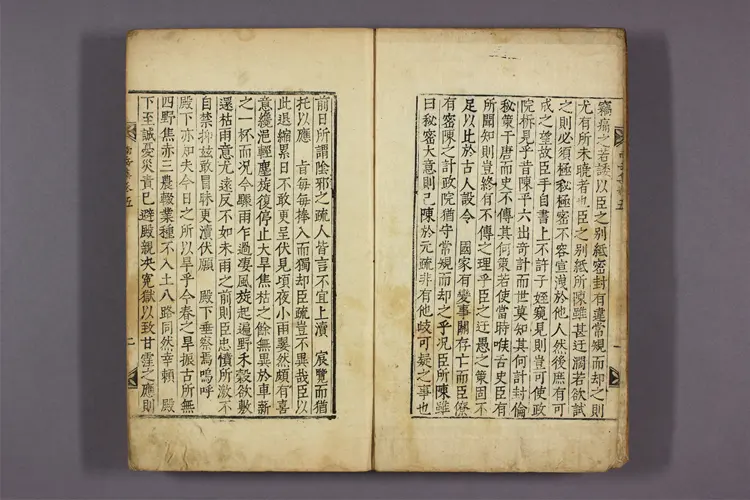 竊痛之若諉以臣之別紙密封有違常規而却之則
尤有所未曉者也臣之別紙所陳雖甚迂濶若欲試
之則必須極秘極密不容宣洩於他人然後庶有可
成之望故臣手自書上不許子姪窺見則豈可使政
院柝見乎昔陳平六出奇計而世莫知其何計封倫
秘策于唐而史不傳其何策若使當時喉舌史臣有
所聞知則豈終有不傳之理乎臣之迂愚之策固不
足以此於古人設令 國家有變事關存亡而臣僚
有密陳之計政院猶守常規而却之乎况臣所陳雖
曰秘密大意則已陳於元疏非有他歧可疑之事也
前日所謂陰邪之疏人皆言不宜上瀆 宸覽而猶
托以應 旨每每捧入而獨却臣疏豈不異哉臣以
此退縮累日不敢更呈伏見頃夜小雨霎然頗有喜
意纔浥輕塵旋復停止大旱焦枯之餘無異於車薪
之一杯而况今驟雨乍過凄風旋起遍野禾穀欲敷
還枯雨意尤遠反不如未雨之前則臣忠憤所激不
自禁抑玆敢冒昧更瀆伏願 殿下垂察焉嗚呼
殿下亦知夫今日之所以旱乎今春之旱振古所無
四野焦赤三農輟業種不入土八路同然幸賴 殿
下至誠憂災責已避殿親決寃獄以致甘霪之應則
二